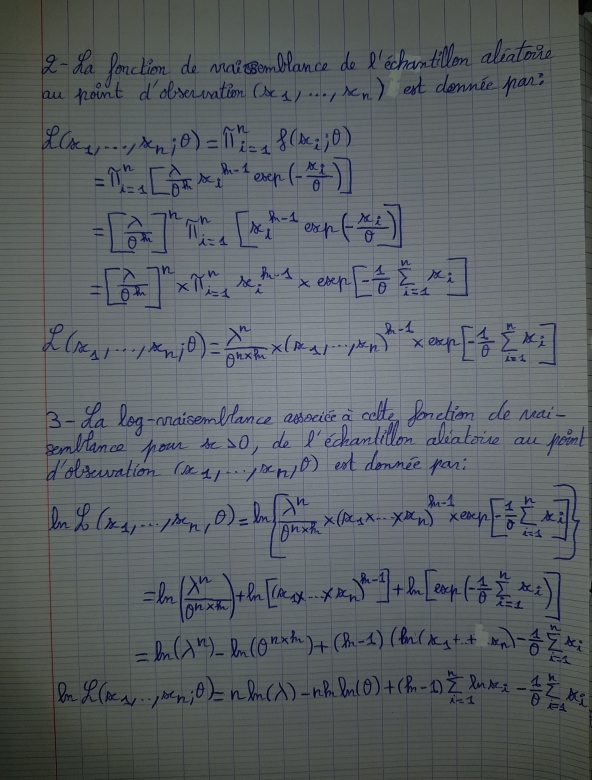 2- La fonction de vraisemblance de l'échantillon aléatoire
au point d'observation (x₁, ..., xₙ) est donnée par:
L(x₁, ..., xₙ; θ) = ∏ⁿᵢ₌₁ f(xᵢ; θ)
= ∏ⁿᵢ₌₁ [λ/θᵏ xᵢᵏ⁻¹ exp(-xᵢ/θ)]
= [λ/θᵏ]ⁿ ∏ⁿᵢ₌₁ [xᵢᵏ⁻¹ exp(-xᵢ/θ)]
= [λ/θᵏ]ⁿ × ∏ⁿᵢ₌₁ xᵢᵏ⁻¹ × exp[-1/θ ∑ⁿᵢ₌₁ xᵢ]
L(x₁, ..., xₙ; θ) = λⁿ/θⁿˣᵏ × (x₁, ..., xₙ)ᵏ⁻¹ × exp[-1/θ ∑ⁿᵢ₌₁ xᵢ]
3- La log-vraisemblance associée à cette fonction de vrai-
semblance pour x >0, de l'échantillon aléatoire au point
d'observation (x₁, ..., xₙ, θ) est donnée par:
ln L(x₁, ..., xₙ, θ) = ln{λⁿ/θⁿˣᵏ × (x₁ × ... × xₙ)ᵏ⁻¹ × exp[-1/θ ∑ⁿᵢ₌₁ xᵢ]}
= ln(λⁿ/θⁿˣᵏ) + ln[(x₁ × ... × xₙ)ᵏ⁻¹] + ln[exp(-1/θ ∑ⁿᵢ₌₁ xᵢ)]
= ln(λⁿ) - ln(θⁿˣᵏ) + (k-1) (ln(x₁ + .. + xₙ) - 1/θ ∑ⁿᵢ₌₁ xᵢ
ln L(x₁, .., xₙ; θ) = n ln(λ) - nk ln(θ) + (k-1) ∑ⁿᵢ₌₁ ln xᵢ - 1/θ ∑ⁿᵢ₌₁ xᵢ